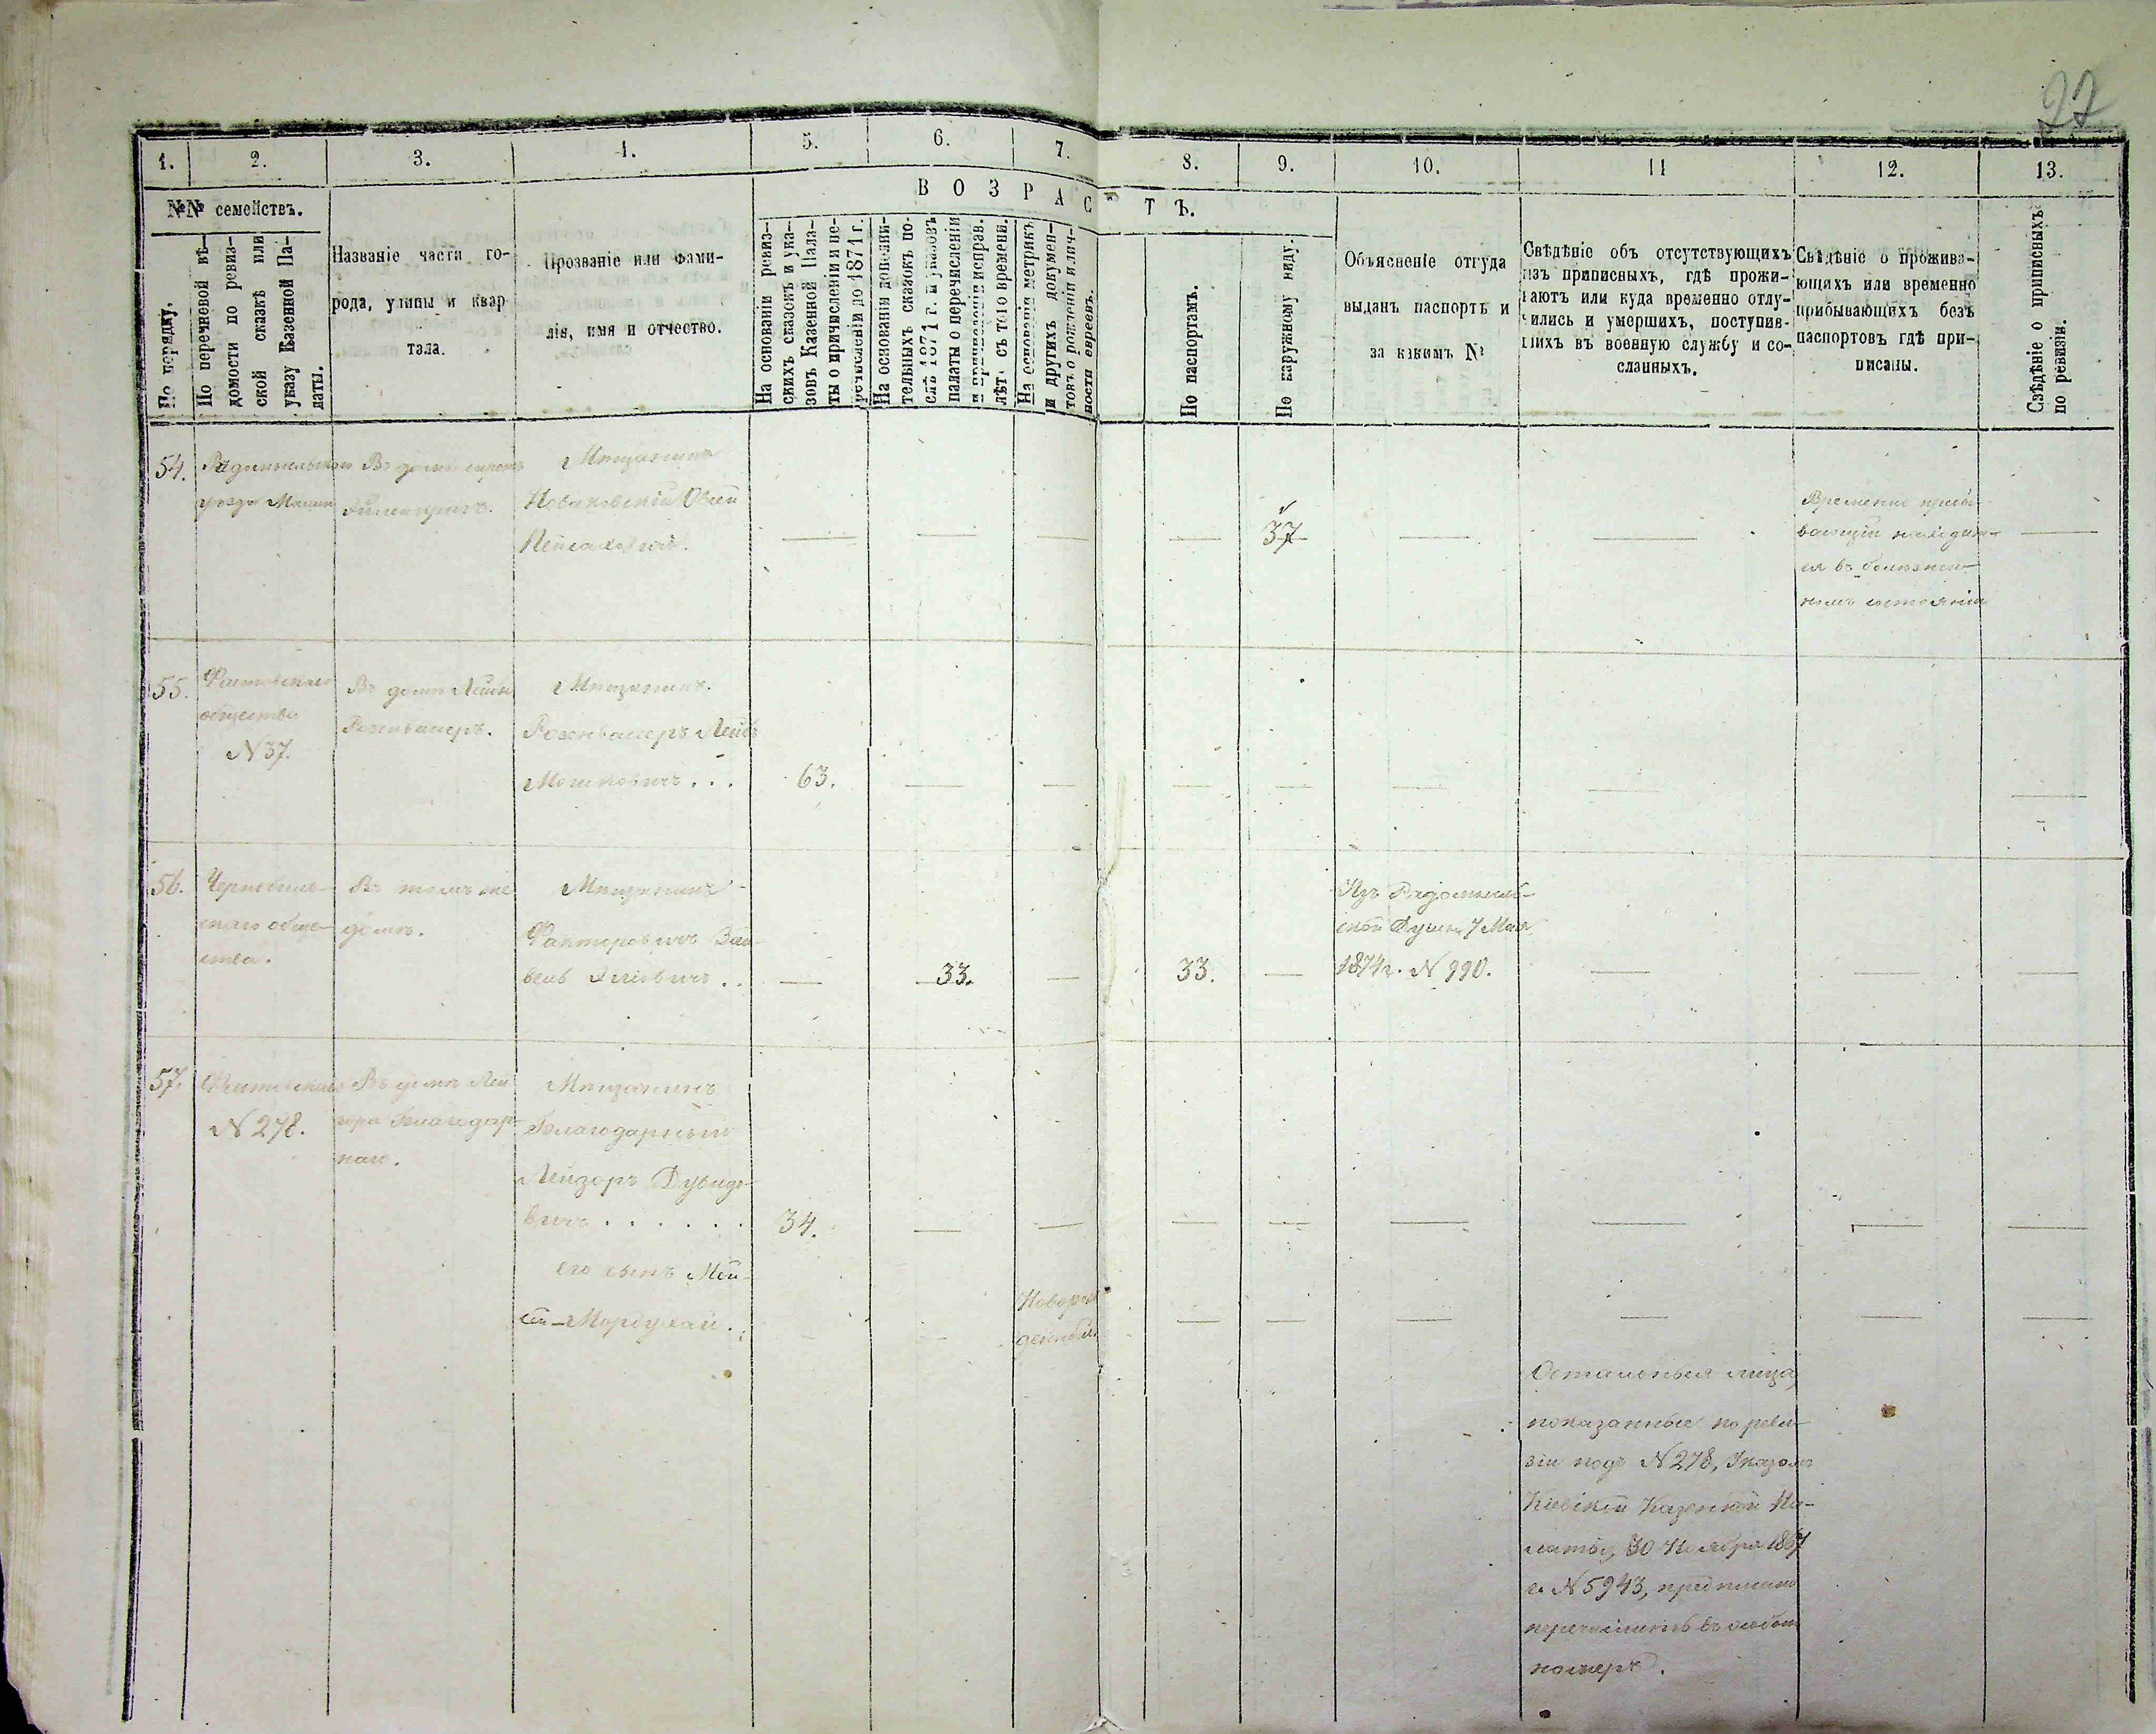 27
1.
2.
3.
4.
5.
6.
7.
8.
9.
10.
11
12.
13.
№№ семействъ.
ВОЗРАСТЪ.
По порядку.
По перечневой вѣ-
домости по ревиз-
ской сказкѣ или
указу Казенной Па-
латы.
Названіе части го-
рода, улицы и квар
тала.
Прозваніе или фами-
лія, имя и отчество.
На основаніи ревиз-
скихъ сказокъ и ука-
зовъ Казенной Пала-
ты о причисленіи и пе-
речисленіи до 1871 г.
На основаніи дополни-
тельныхъ сказокъ по-
слѣ 1871 г. и указовъ
палаты о перечисленіи
и причисленіи исправ.
лѣт. съ того времени.
На основаніи метрикъ
и другихъ докумен-
товъ о рожденіи и лич-
ности евреевъ.
По паспортамъ.
По наружному виду.
Объясненіе откуда
выданъ паспортъ и
за какимъ №
Свѣдѣніе объ отсутствующихъ
изъ приписныхъ, гдѣ прожи-
ваютъ или куда временно отлу-
чились и умершихъ, поступив-
шихъ въ военную службу и со-
сланныхъ.
Свѣдѣніе о прожива-
ющихъ или временно
прибывающихъ безъ
паспортовъ гдѣ при-
писаны.
Свѣдѣніе о приписныхъ
по ревизіи.
54.
Радомысльскаго
уѣзда
Въ домѣ
Мѣщанинъ
Новаковскій Овсей
Пейсаховичъ.
37
Временно пребы-
вающій находит-
ся въ болѣзнен-
номъ состояніи
55.
Фастовскаго
общества
N 37.
Въ домѣ Лейбы
Розенвасеръ.
Мѣщанинъ.
Розенвасеръ Лейбъ
Мошковичъ . . .
63.
56.
Чернобыль-
скаго обще-
ства.
Въ томъ же
домѣ.
Мѣщанинъ
Факторовичъ Зай-
вель Элiовичъ . .
33.
33.
Изъ Радомысль-
ской Думы 7 Мая
1874 г. N 990.
57.
Фастовскаго
N 278.
Въ домѣ Лей
зора Благодар-
наго.
Мѣщанинъ
Благодарный
Лейзоръ Дувидо-
вичъ . . . . . .
34.
его сынъ Мой-
сей-Мордухай.
Новорож
денный
Остальныя лица,
показанные по реви-
зіи подъ N 278, Указомъ
Кіевской Казенной Па-
латы, 30 Ноября 1867
г. N 5943, предписано
перечислить въ особый
номеръ.